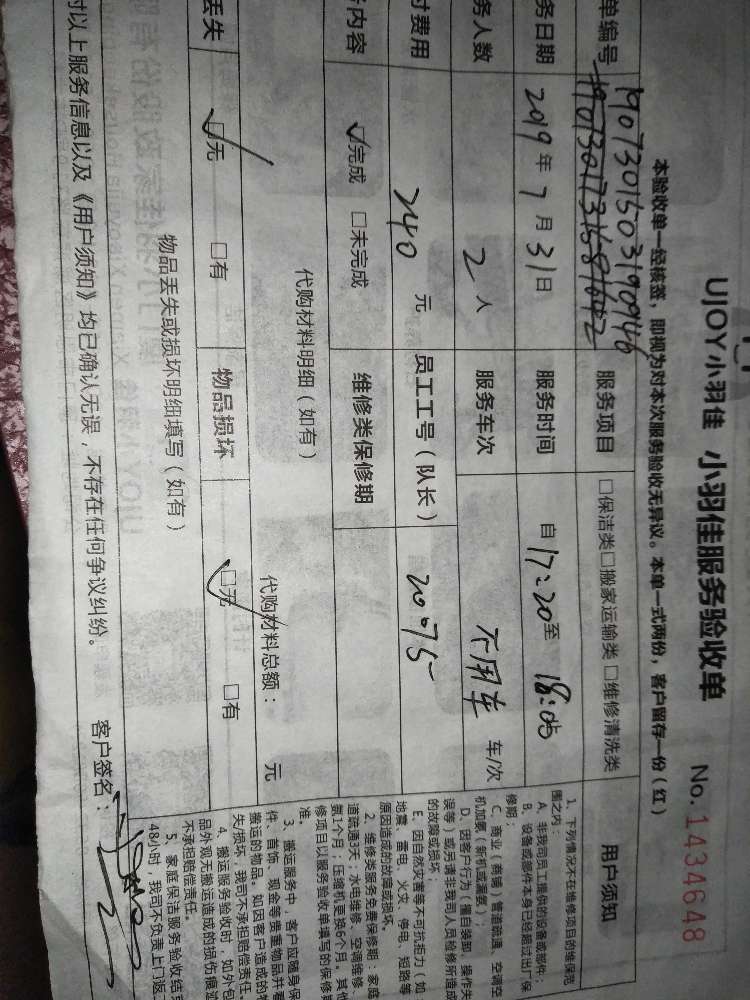 UJOY小羽佳 小羽佳服务验收单 No.1434648
本验收单一经核签，即视为对本次服务验收无异议。本单一式两份，客户留存一份（红）
单编号 190730150319091946 服务项目 □保洁类□搬家运输类□维修清洗类
务日期 2019年7月31日 服务时间 自17:20至18:05
务人数 2人 服务车次 不用车 车/次
付费用 240元 员工工号（队长） 20075
内容 ☑完成 □未完成 维修类保修期
代购材料明细（如有） 代购材料总额： 元
丢失 ☑无 □有 物品损坏 ☑无 □有
物品丢失或损坏明细填写（如有）
对以上服务信息以及《用户须知》均已确认无误，不存在任何争议纠纷。
客户签名：
用户须知
1、下列情况不在维修项目的维保范
围之内：
A、非我司员工提供的设备或部件；
B、设备或部件本身已经超过出厂保
修期；
C、商业（商铺）管道疏通、空调空
机加氨（新机或漏氨）；
D、因客户行为（擅自装卸、操作失
误等）或另请非我司人员检修所造成
的故障或损坏。
E、因自然灾害等不可抗拒力（如
地震、雷电、火灾、停电、短路等
原因造成的故障或损坏。
2、维修类服务免费保修期：家庭
道疏通3天；水电维修、空调维修、
氨1个月；压缩机更换6个月。其他
修项目以服务验收单填写的保修期
准。
3、搬运服务中，客户应随身保
件、首饰、现金等贵重物品并看
搬运的物品。如因客户造成的物
失/损坏，我司不承担赔偿责任。
4、搬运服务验收时，如外包
品外观无搬运造成的损伤痕迹
不承担赔偿责任。
5、家庭保洁服务验收结束
48小时，我司不负责上门返工